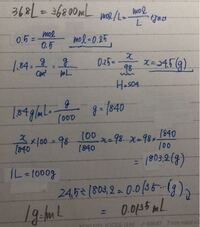 36.8L = 36800mL
mol/L = mol/L × 1000
0.5 = mol/0.5 mol = 0.25
1.84 = g/cm³ = g/mL
0.25 = x/98 x = 24.5(g)
H₂SO₄
1.84g/mL = g/1000 g = 1840
x/1840 × 100 = 98 100/1840 x = 98 x = 98 × 1840/100
= 1803.2(g)
1L = 1000g
24.5 ÷ 1803.2 = 0.0135… (g)
1g = mL = 0.0135mL